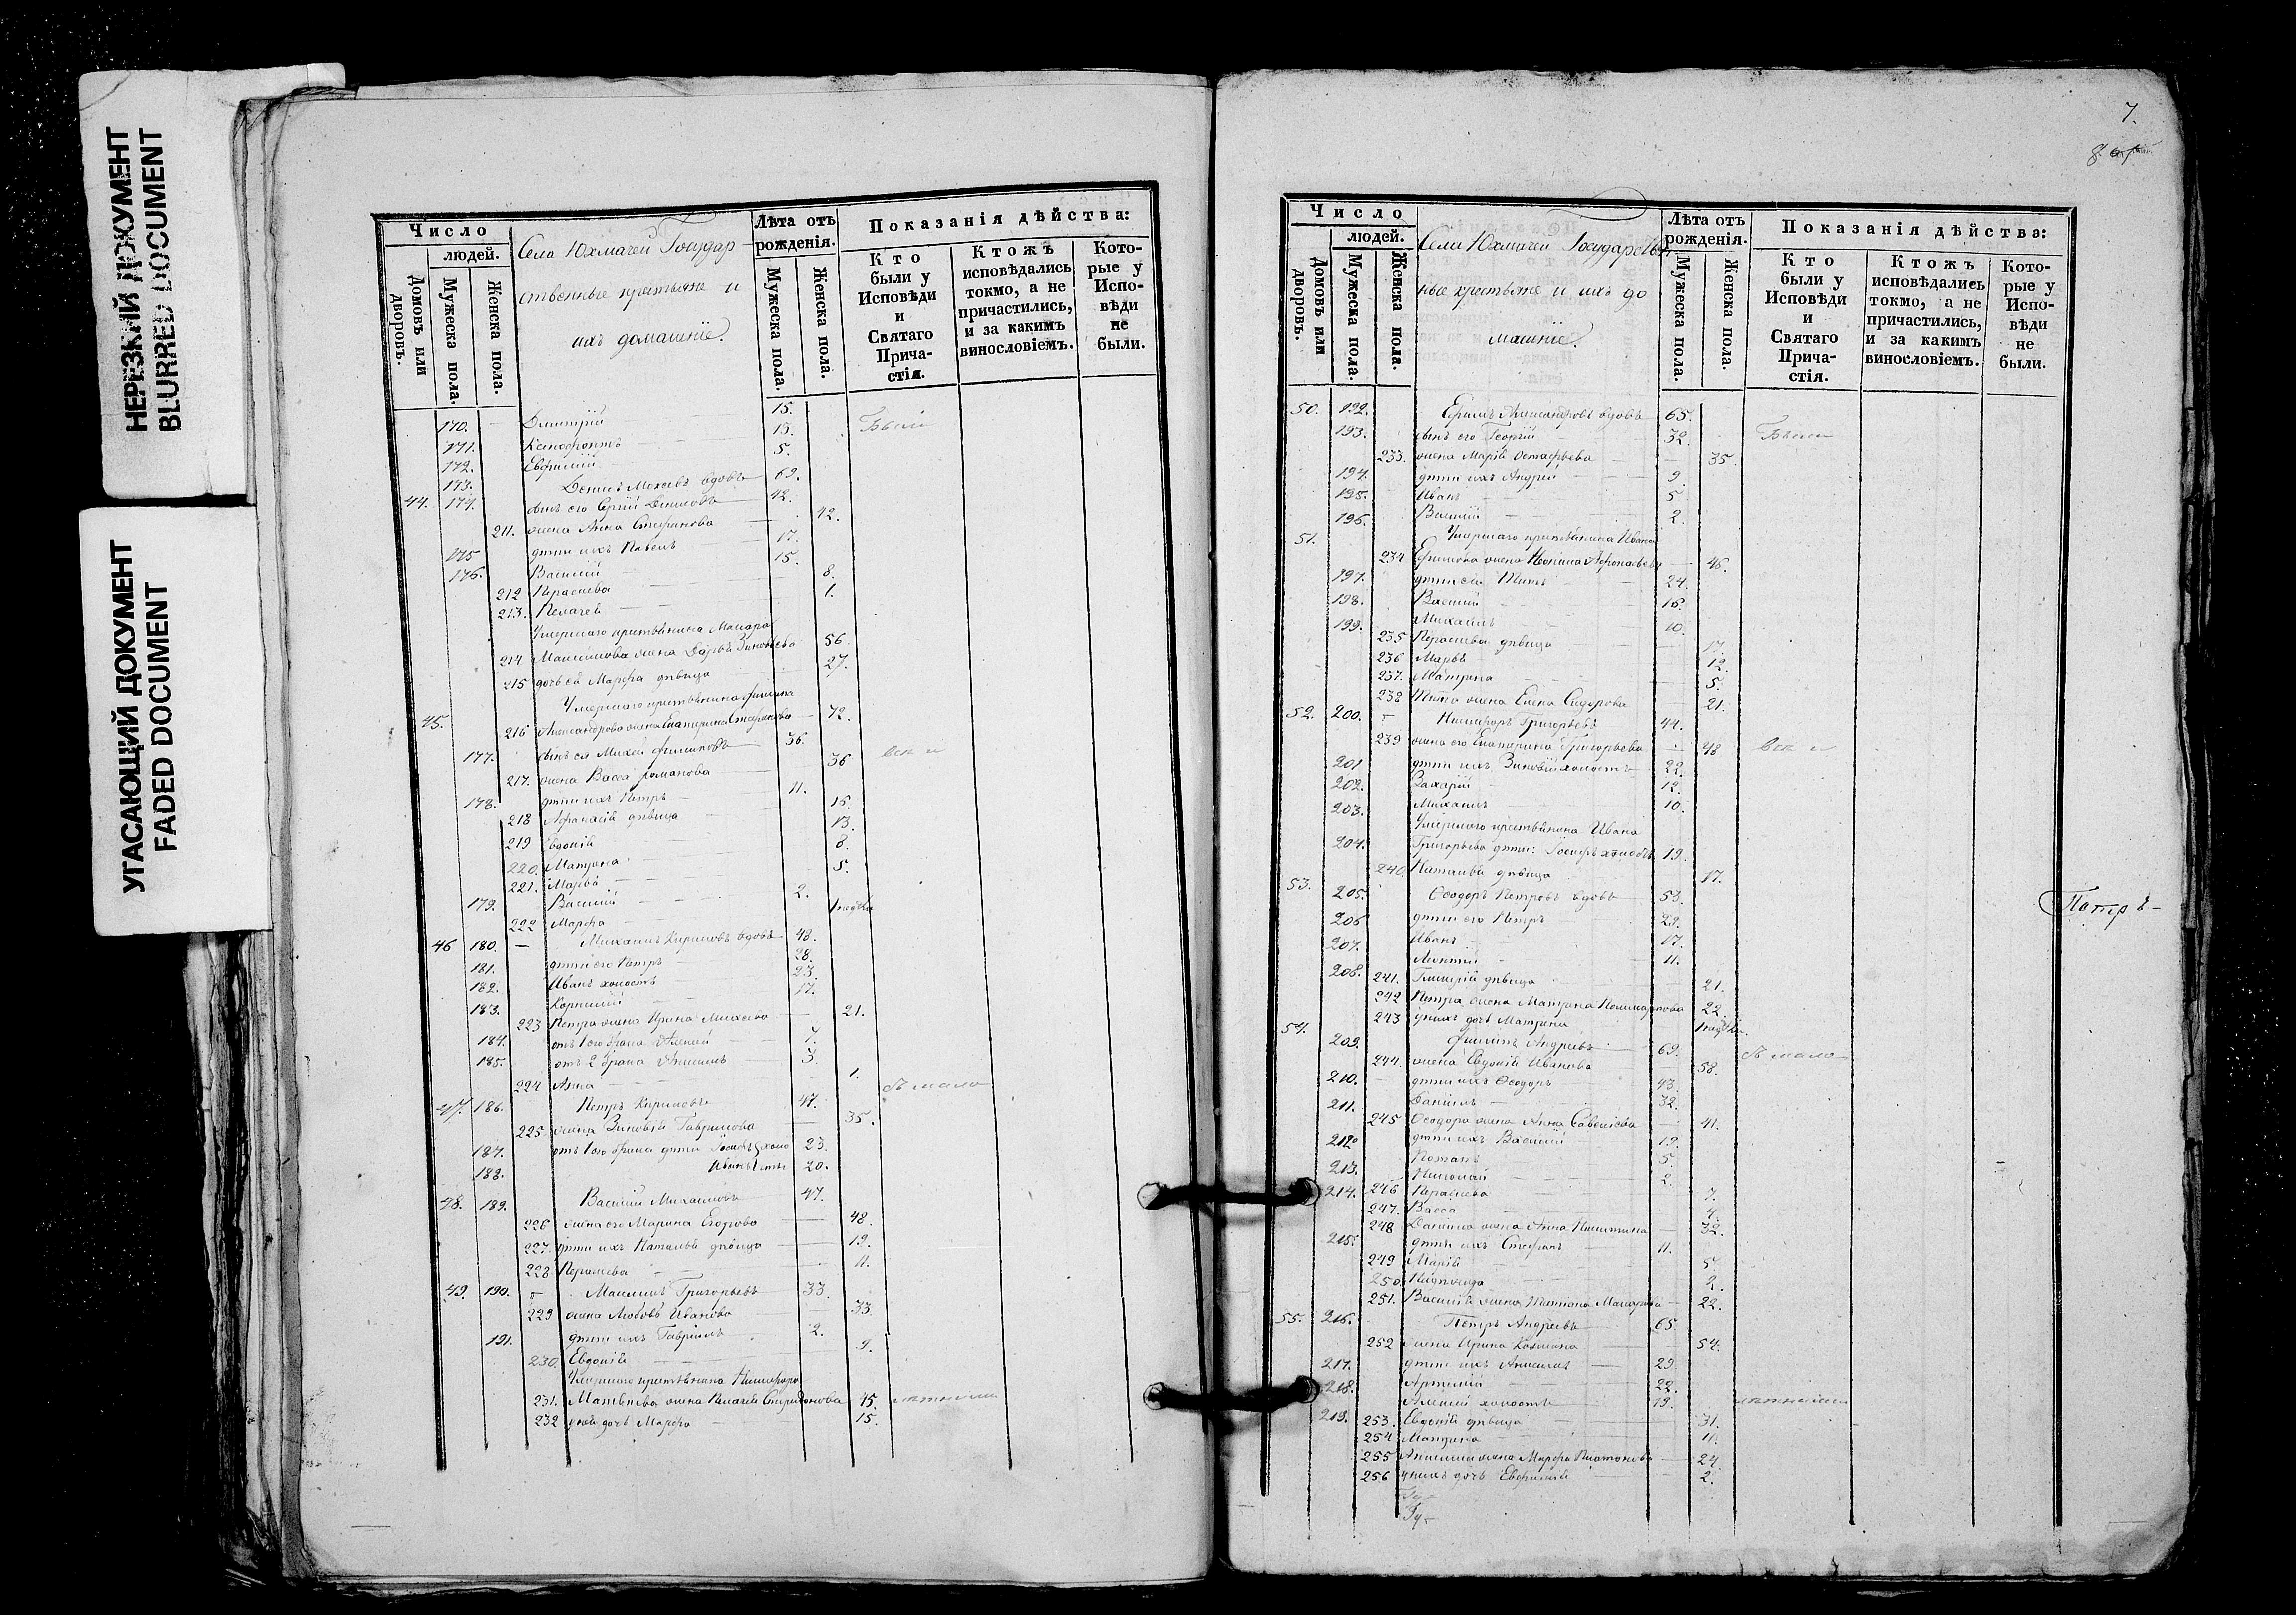 НЕРЕЗКИЙ ДОКУМЕНТ
BLURRED DOCUMENT
УГАСАЮЩИЙ ДОКУМЕНТ
FADED DOCUMENT
Число
людей.
Домовъ или дворовъ.
Мужеска пола.
Женска пола.
Села Юхмачей Государ-
ственные крестьяне и
ихъ домашніе.
Лѣта отъ рожденія.
Мужеска пола.
Женска пола.
Показанія дѣйства:
Кто были у Исповѣди и Святаго Прича-стія.
Ктожъ исповѣдались токмо, а не причастились, и за какимъ винословіемъ.
Кото-рые у Испо-вѣди не были.
15.
170. Димитрій 13. Были
171. Ксенофонтъ 5.
172. Евфимій
173. Денисъ вдовъ 69.
44. 174. сынъ его Сергій 42.
211. жена Анна Стефанова 42.
175 дѣти ихъ Павелъ 17.
176. Василій 15.
212 Параскева 8.
213. Пелагея 1.
Умершаго крестьянина Макара
214 Максимова жена Дарья Зиновьева 56.
215 дочь ея Марфа дѣвица 27.
Умершаго крестьянина Филиппа
45. 216 Александрова жена Екатерина Стефанова 72.
177. сынъ ея Михей Филипповъ 36.
217. жена Васса Романова 36 вси
178. дѣти ихъ Петръ 11.
218 Афанасія дѣвица 16.
219 Евдокія 13.
220. Матрона 8.
221. Марья 5.
179. Василій 2.
222 Марфа
46 180. Михаилъ Кириловъ вдовъ 48.
181. дѣти его Петръ 28.
182. Иванъ холостъ 23.
183. Корнилій 17.
223 Петра жена Ирина Михеева 21.
184. отъ 1го брака Алексій 7.
185. отъ 2 брака Анисимъ 3
224 Анна 1.
47. 186. Петръ Кириловъ 47. съ мало
225. жена Зиновія Гаврилова 35.
187. отъ 1го брака дѣти Іосифъ холо 23.
188. Иванъ сты 20.
48. 189. Василій Михаиловъ 47.
226 жена его Марина Егорова 48.
227. дѣти ихъ Наталья дѣвица 19.
228 Параскева 11.
49. 190. Максимъ Григорьевъ 33.
229 жена Любовь Иванова 33.
191. дѣти ихъ Гавріилъ 2.
230. Евдокія 9.
Умершаго крестьянина Никифора
231. Матвѣева жена Пелагея Спиридонова 45. лѣтними
232 у нея дочь Марфа 15.
7.
Число
людей.
Домовъ или дворовъ.
Мужеска пола.
Женска пола.
Села Юхмачей Государствен-
ные крестьяне и ихъ до
машніе.
Лѣта отъ рожденія.
Мужеска пола.
Женска пола.
Показанія дѣйства:
Кто были у Исповѣди и Святаго Прича-стія.
Ктожъ исповѣдались токмо, а не причастились, и за какимъ винословіемъ.
Кото-рые у Испо-вѣди не были.
50. 192. Ефимъ Александровъ вдовъ 65.
193. сынъ его Георгій 32. Были
233. жена Марія Остафьева 35.
194. дѣти ихъ Андрей 9.
195. Иванъ 5
196. Василій 2.
51. Умершаго крестьянина Ивана
234 Ефимова жена Афонасьева 46.
197. дѣти ея Титъ 24.
198. Василій 16.
199. Михаилъ 10.
235 Параскева дѣвица 17.
236 Марья 12.
237. Матрона 5.
238 Тита жена Елена Сидорова 21.
52. 200. Никифоръ Григорьевъ 44.
239 жена его Екатерина Григорьева 48 вси
201 дѣти ихъ Зиновій холостъ 22.
202. Захарій 12.
203. Михаилъ 10.
Умершаго крестьянина Ивана
204. Григорьева дѣти: Іосифъ холостъ 19.
240. Наталья дѣвица 17.
53. 205. Ѳеодоръ Петровъ вдовъ 53.
206 дѣти его Петръ 23.
207. Иванъ 17.
208. Леонтій 11.
241. дѣвица 21.
242 Петра жена Матрона Поликарпова 22.
243 у нихъ дочь Матрона
54. 209. Филиппъ Андреевъ 69. съ мало
244. жена Евдокія Иванова 58.
210. дѣти ихъ Ѳеодоръ 43.
211. Даніилъ 32.
245 Ѳеодора жена Анна Савельева 41.
212 дѣти ихъ Василій 19.
213. Потапъ 5.
214. Николай 2.
246 Параскева 7.
247. Васса 4.
248 Даніила жена Анна Никитина 32.
215. дѣти ихъ Стефанъ 11.
249 Марія 5.
250. 2.
251. Василія жена Татіана Макарова 22.
55. 216. Петръ Андреевъ 65.
252 жена Ирина 54.
217. дѣти ихъ Анисимъ 29.
218. Артемій 22.
219. Алексій холостъ 19. лѣтними
253. Евдокія дѣвица 31.
254 Матрона 11.
255 Анисима жена Марфа Платонова 24.
256 у нихъ дочь Евфимія 2.